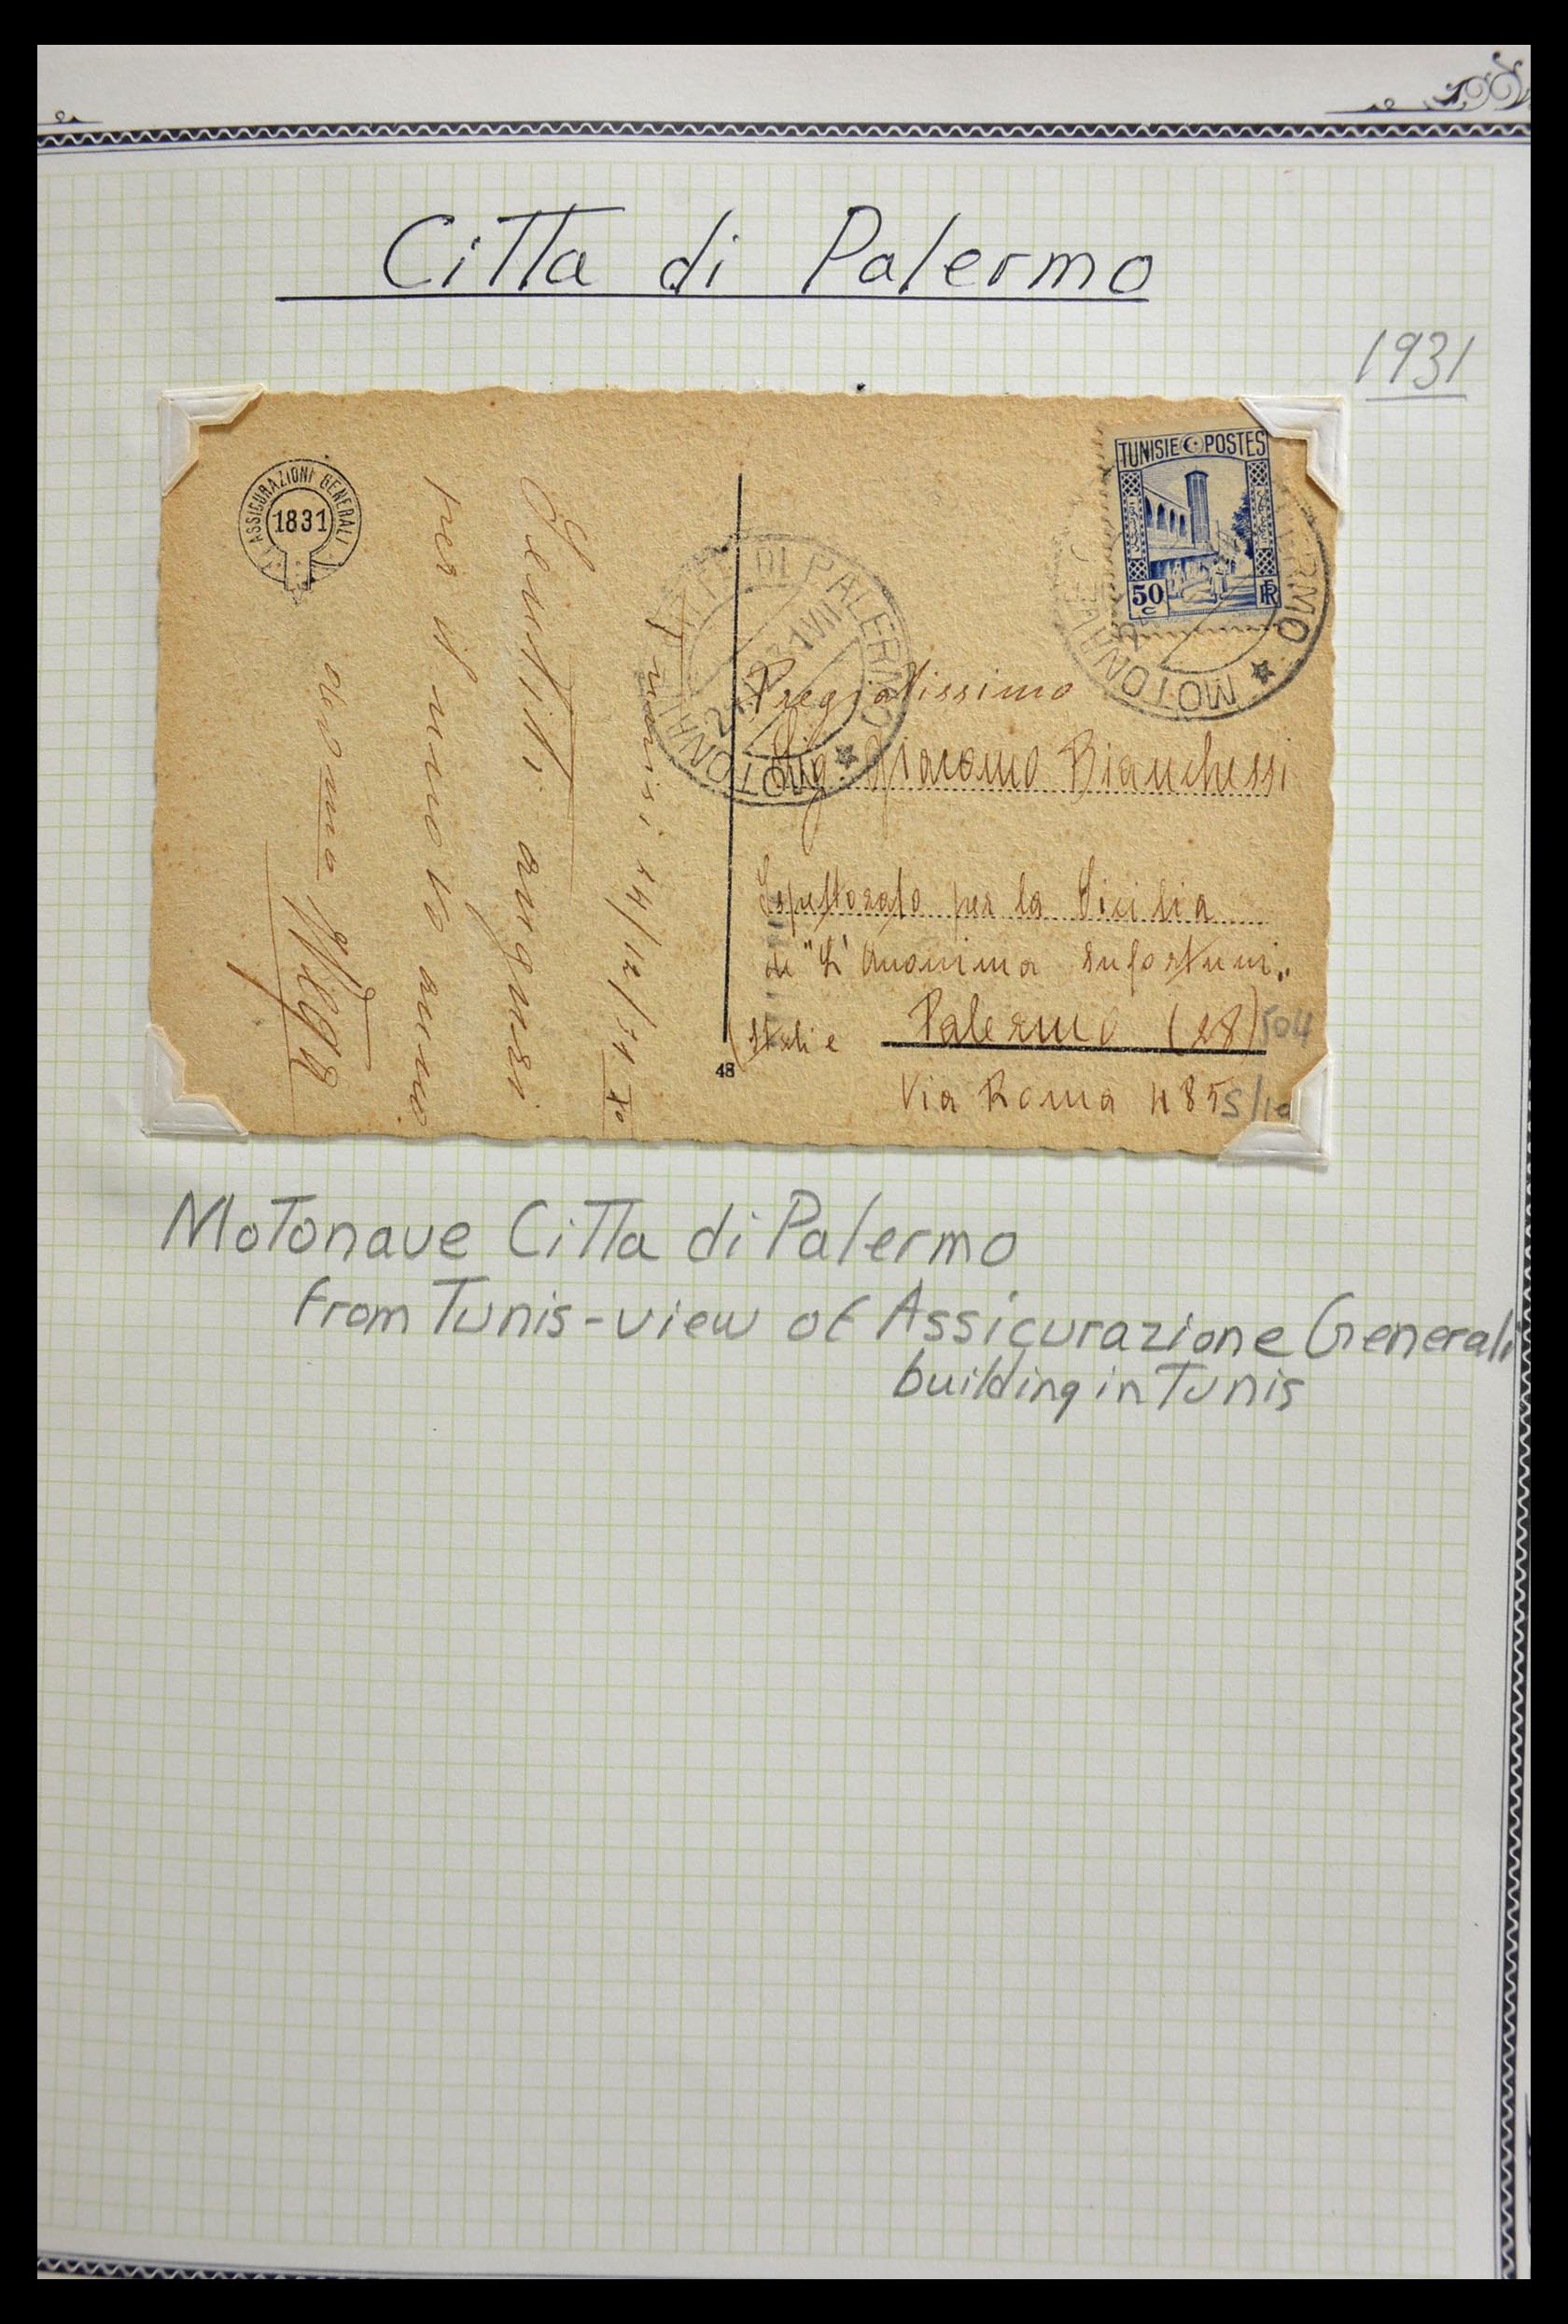 Citta di Palermo
1931
ASSICURAZIONI GENERALI
1831
TUNISIE POSTES
50 c
RF
CITTA DI PALERMO
MOTONAVE
PALERMO
MOTONAVE
Tunisi 24/12/31 Xº
Sentiti auguri
per il nuovo anno
Pregiatissimo
Sig. Giacomo Bianchessi
Ispettorato per la Sicilia
di "L'Anonima Infortuni"
Italie Palermo (28) 504
Via Roma 485 5/10
48
Motonave Citta di Palermo
from Tunis - view of Assicurazione Generali
building in Tunis